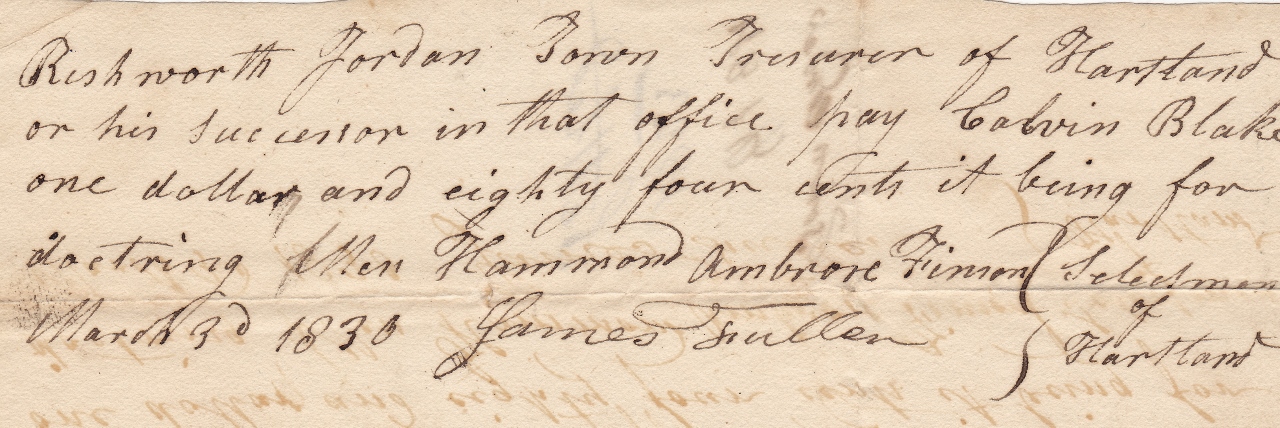 Rishworth Jordan Town Tresurer of Hartland
or his successor in that office pay Calvin Blake
one dollar and eighty four cents it being for
doctring Allen Hammond Ambrose Finson } Selectmen
of
March 3d 1830 James Fuller } Hartland